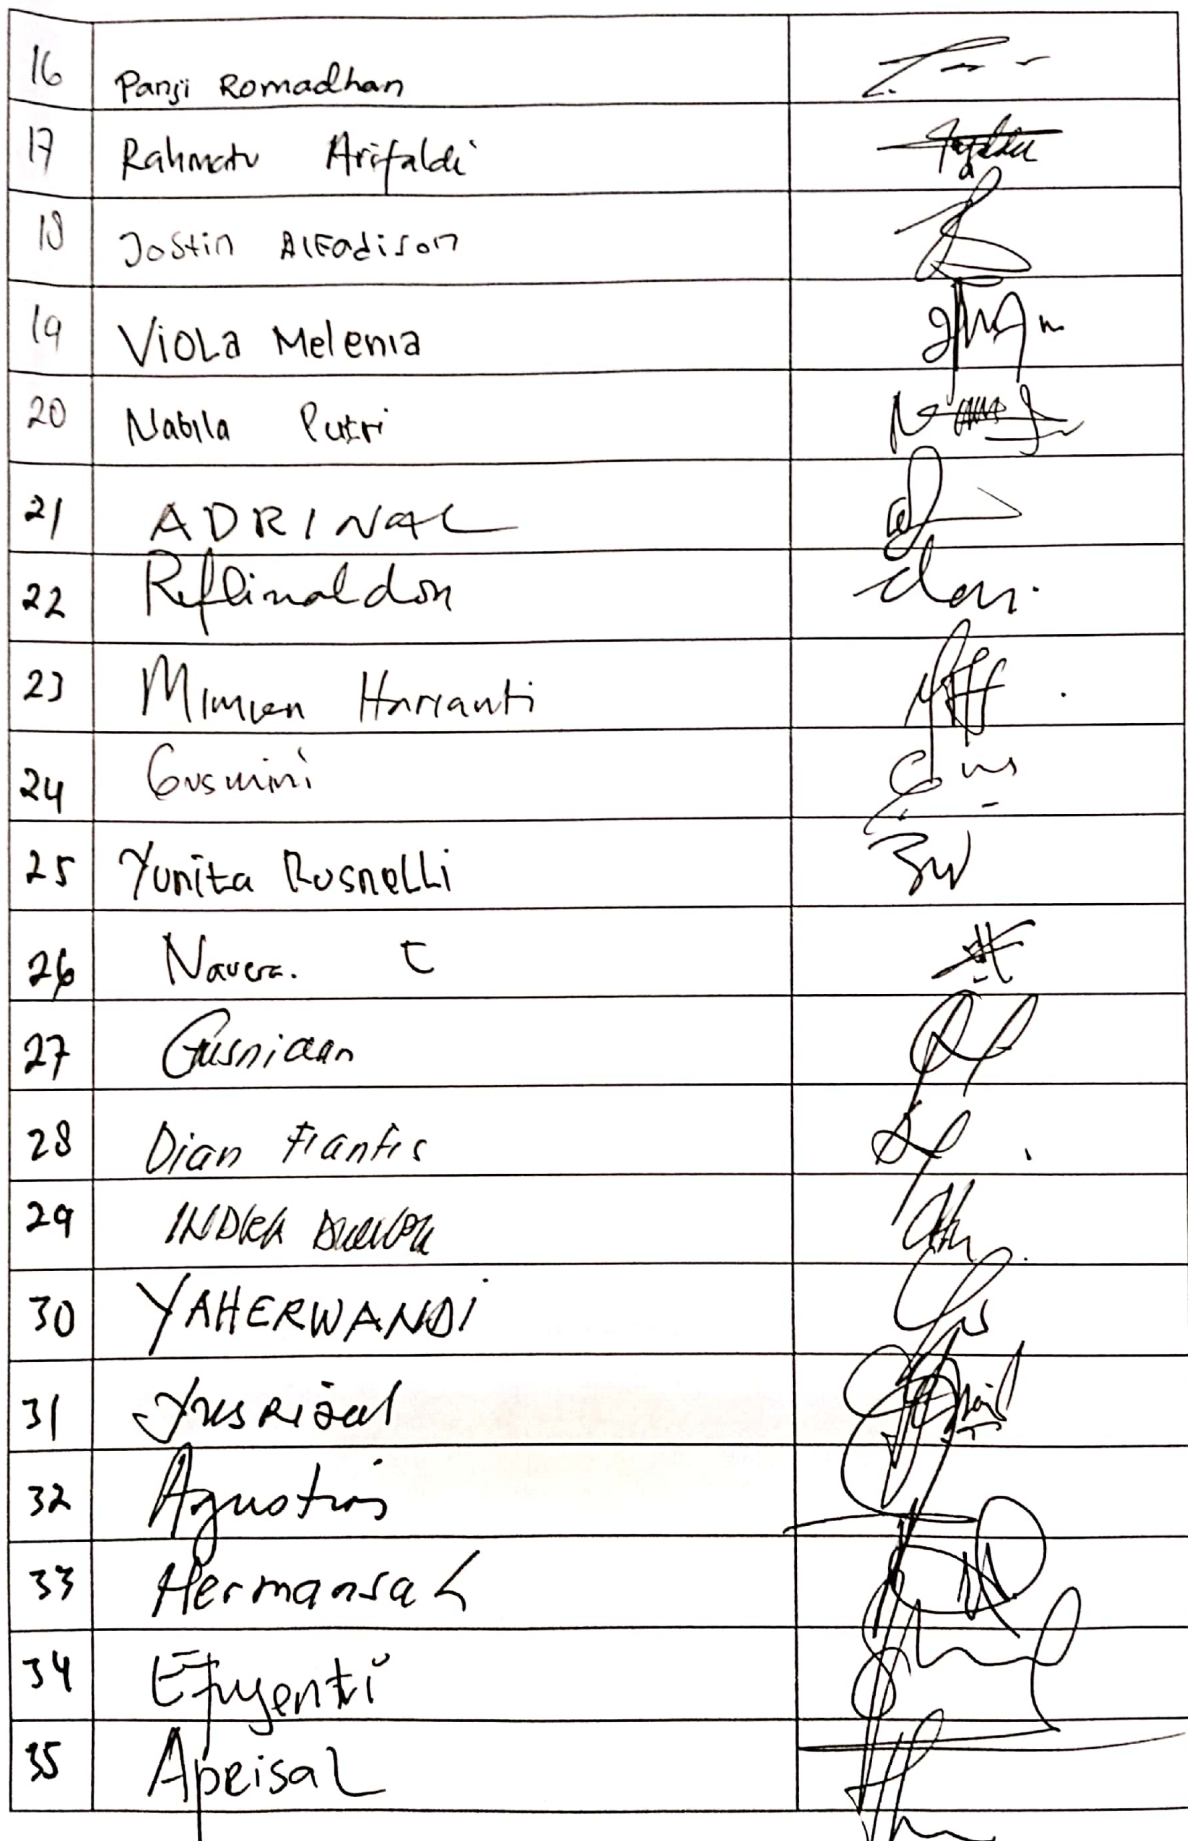 16 Panji Romadhan
17 Rahmatu Arifaldi
18 Jostin Alfadison
19 Viola Melenia
20 Nabila Putri
21 ADRINAL
22 Reflinaldon
23 Mimien Harianti
24 Gusmini
25 Yunita Rusnelli
26
27 Gusniaan
28 Dian Fiantis
29 INDRA
30 YAHERWANDI
31 Yusrizal
32 Agustins
33 Hermansah
34
35 Aprisal